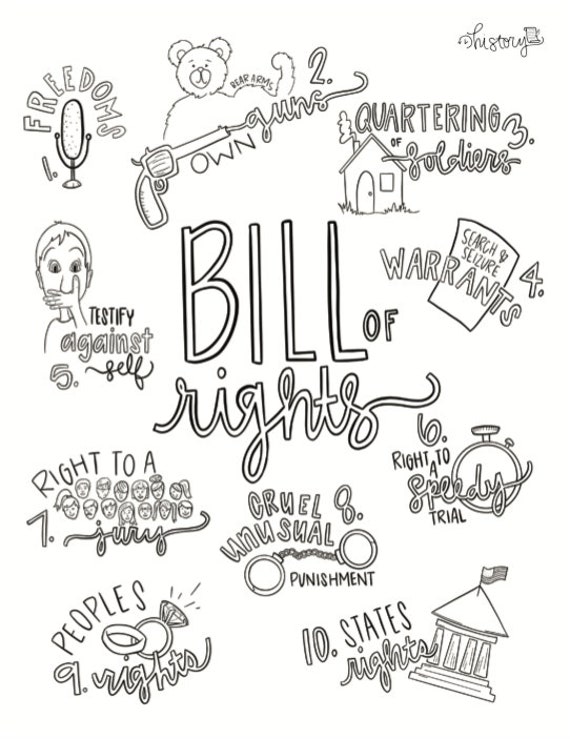 history
FREEDOMS
1.
BEAR ARMS
2.
OWN guns
QUARTERING
OF
soldiers
3.
SEARCH &
SEIZURE
WARRANTS
4.
BILL OF
rights
TESTIFY
against
5. self
6.
RIGHT TO
A
Speedy
TRIAL
RIGHT TO A
7. jury
CRUEL 8.
unusual
PUNISHMENT
PEOPLES
9. rights
10. STATES
rights